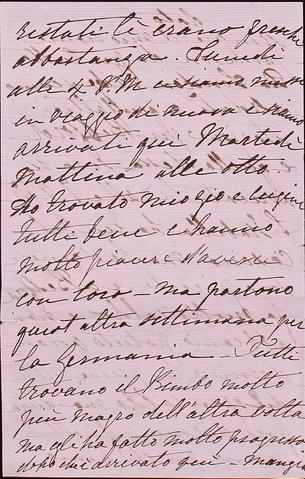 restati lì erano fresche
abbastanza. Lunedì
alle 4 P.M ci siamo messi
in viaggio di nuovo e siamo
arrivati qui Martedì
Mattina alle otto.
Ho trovato mio zio e
tutti bene e hanno
molto piacere d'averci
con loro – ma partono
quest'altra settimana per
la Germania – Tutti
trovano il Bimbo molto
più magro dell'altra volta
ma egli ha fatto molto progresso
dopo che è arrivato qui – mangia